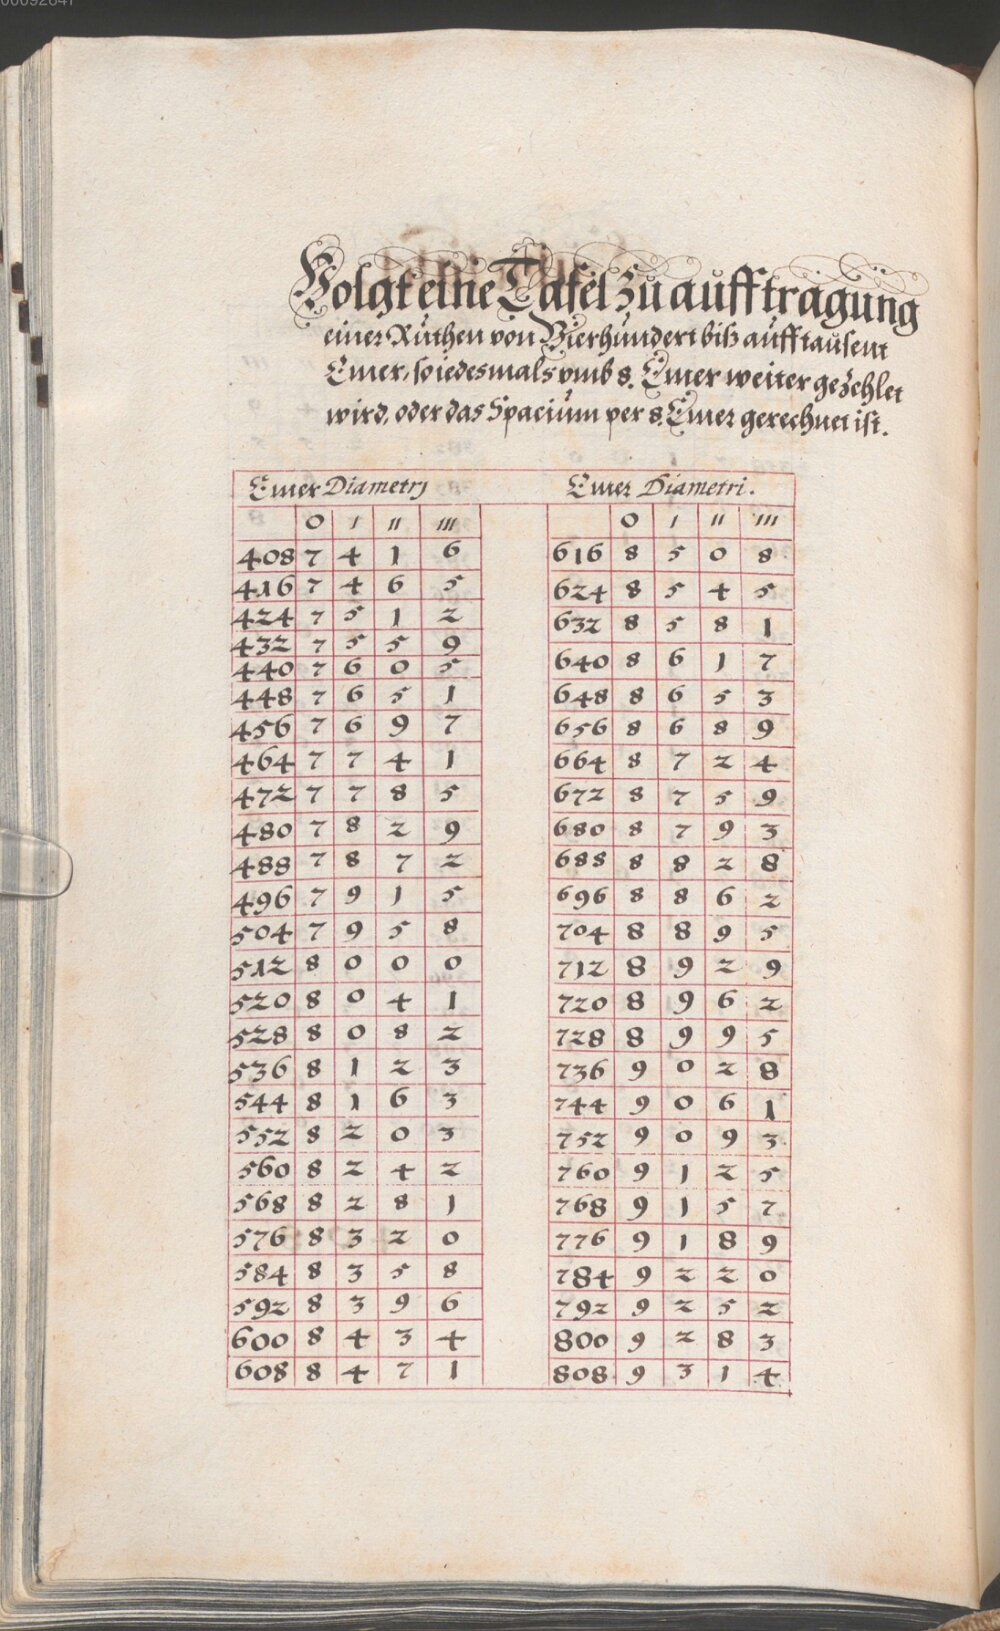 00092847
Volgt eine Tafel zu aufftragung
einer Ruthen von Vierhundert biß auff tausent
Eimer, so iedesmals vmb 8. Eimer weiter gezehlet
wird, oder das Spacium per 8. Eimer gerechnet ist.
Eimer Diametrj Eimer Diametri.
0 I II III 0 I II III
408 7 4 1 6 616 8 5 0 8
416 7 4 6 5 624 8 5 4 5
424 7 5 1 2 632 8 5 8 1
432 7 5 5 9 640 8 6 1 7
440 7 6 0 5 648 8 6 5 3
448 7 6 5 1 656 8 6 8 9
456 7 6 9 7 664 8 7 2 4
464 7 7 4 1 672 8 7 5 9
472 7 7 8 5 680 8 7 9 3
480 7 8 2 9 688 8 8 2 8
488 7 8 7 2 696 8 8 6 2
496 7 9 1 5 704 8 8 9 5
504 7 9 5 8 712 8 9 2 9
512 8 0 0 0 720 8 9 6 2
520 8 0 4 1 728 8 9 9 5
528 8 0 8 2 736 9 0 2 8
536 8 1 2 3 744 9 0 6 1
544 8 1 6 3 752 9 0 9 3
552 8 2 0 3 760 9 1 2 5
560 8 2 4 2 768 9 1 5 7
568 8 2 8 1 776 9 1 8 9
576 8 3 2 0 784 9 2 2 0
584 8 3 5 8 792 9 2 5 2
592 8 3 9 6 800 9 2 8 3
600 8 4 3 4 808 9 3 1 4
608 8 4 7 1